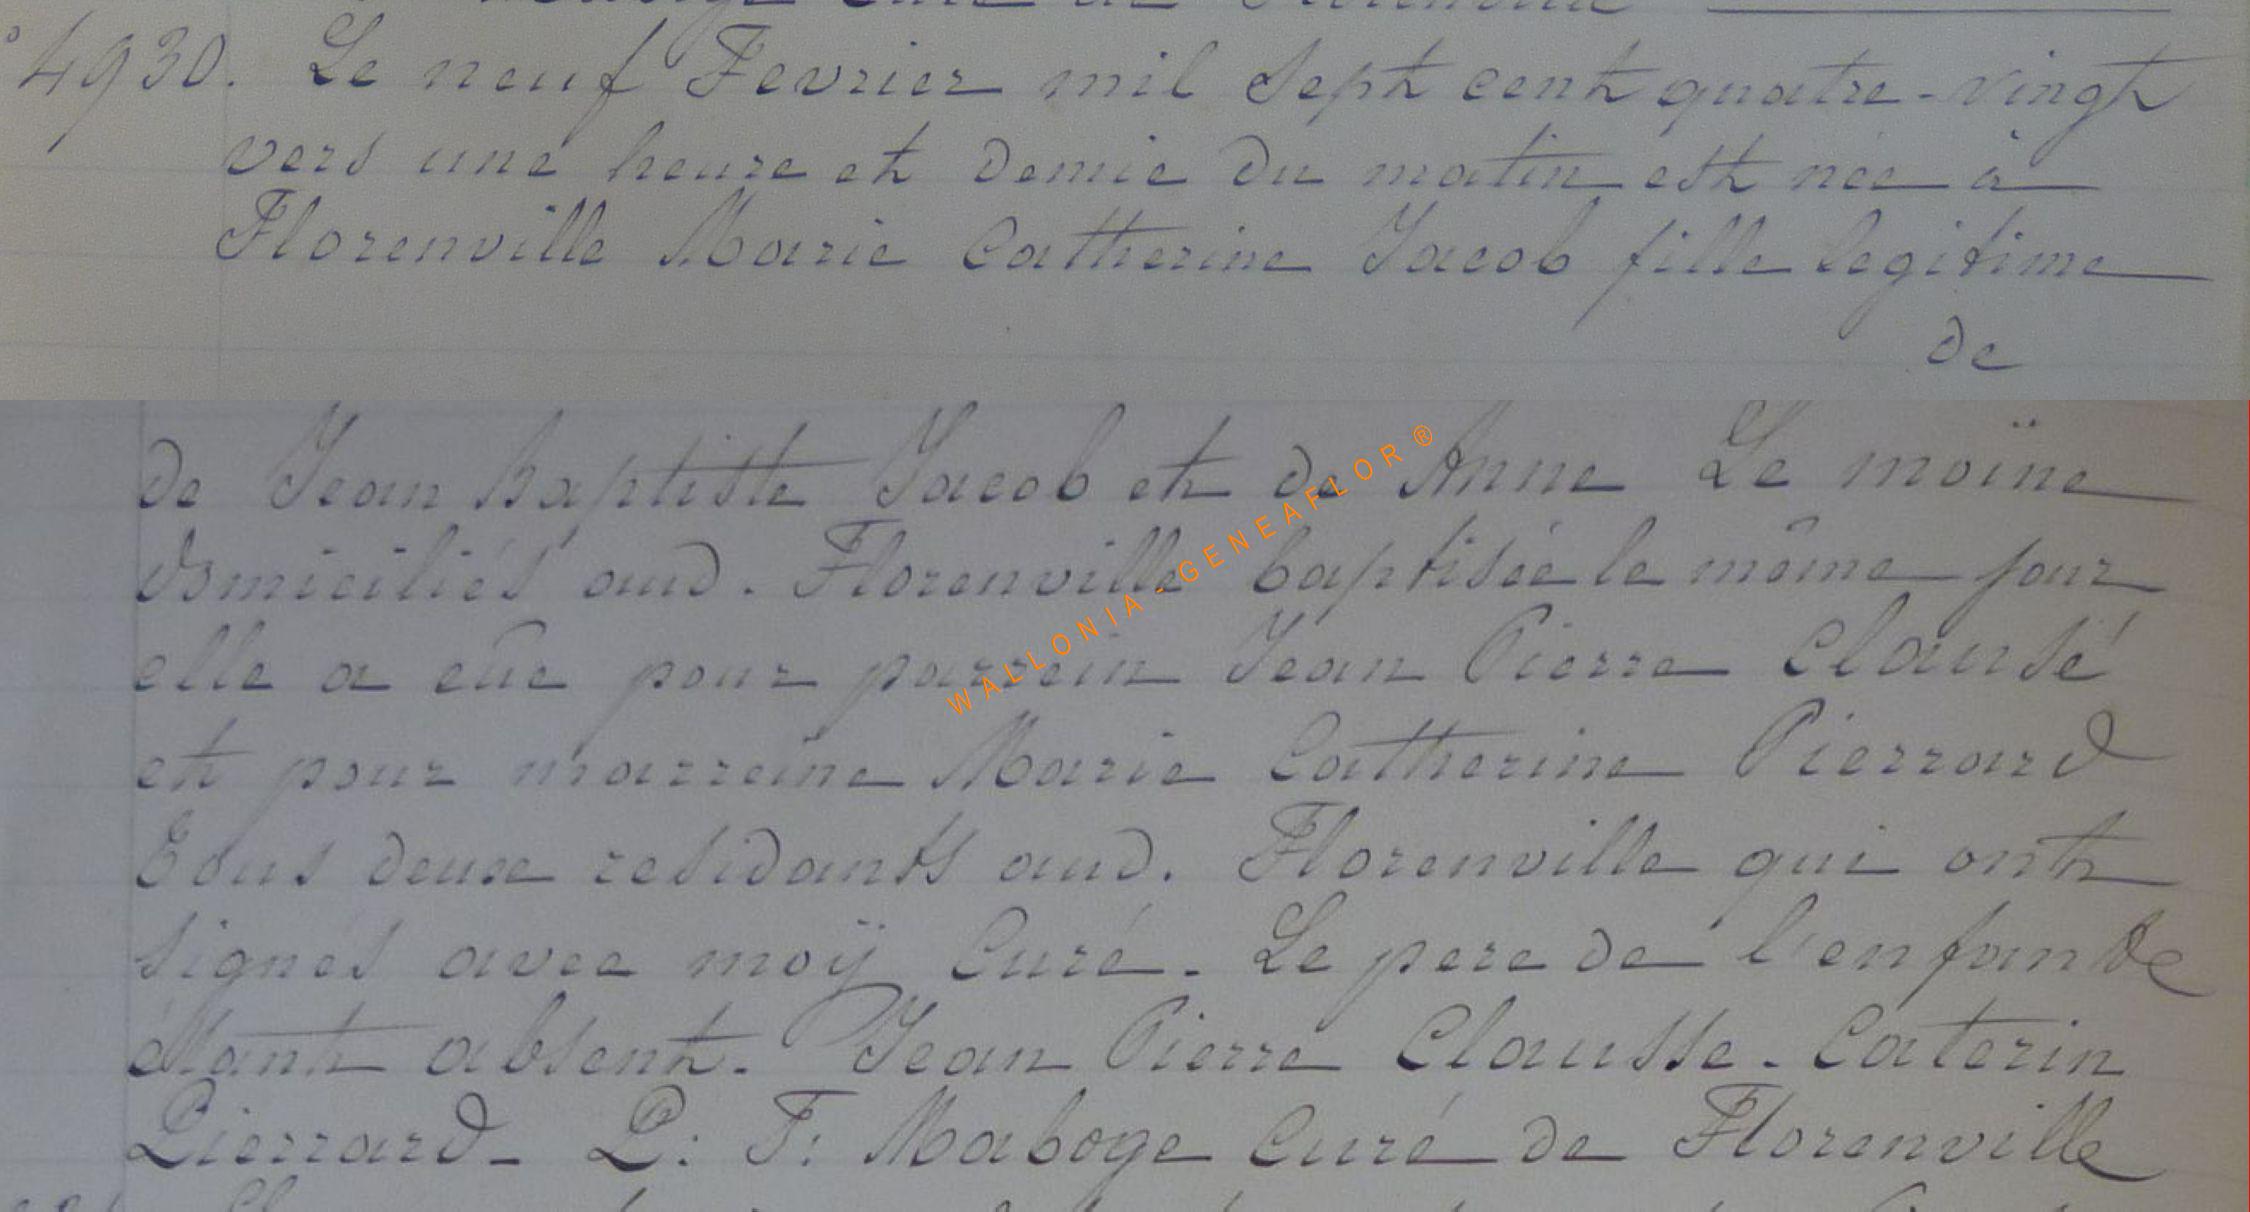 4930. Le neuf Fevrier mil Sept cent quatre-vingt
vers une heure et demie du matin est née à
Florenville Marie Catherine Jacob fille legitime
de
de Jean Baptiste Jacob et de Anne Le moïne
domiciliés aud. Florenville baptisée le même jour
elle a eûe pour parrein Jean Pierre Clausé
et pour marreine Marie Catherine Pierrard
Tous deux residants aud. Florenville qui ont
signés avec moÿ Curé. Le pere de l'enfant
étant absent. Jean Pierre Clausse. Caterin
Pierrard_ P: F: Maboge Curé de Florenville
WALLONIA - GENEAFLOR ®